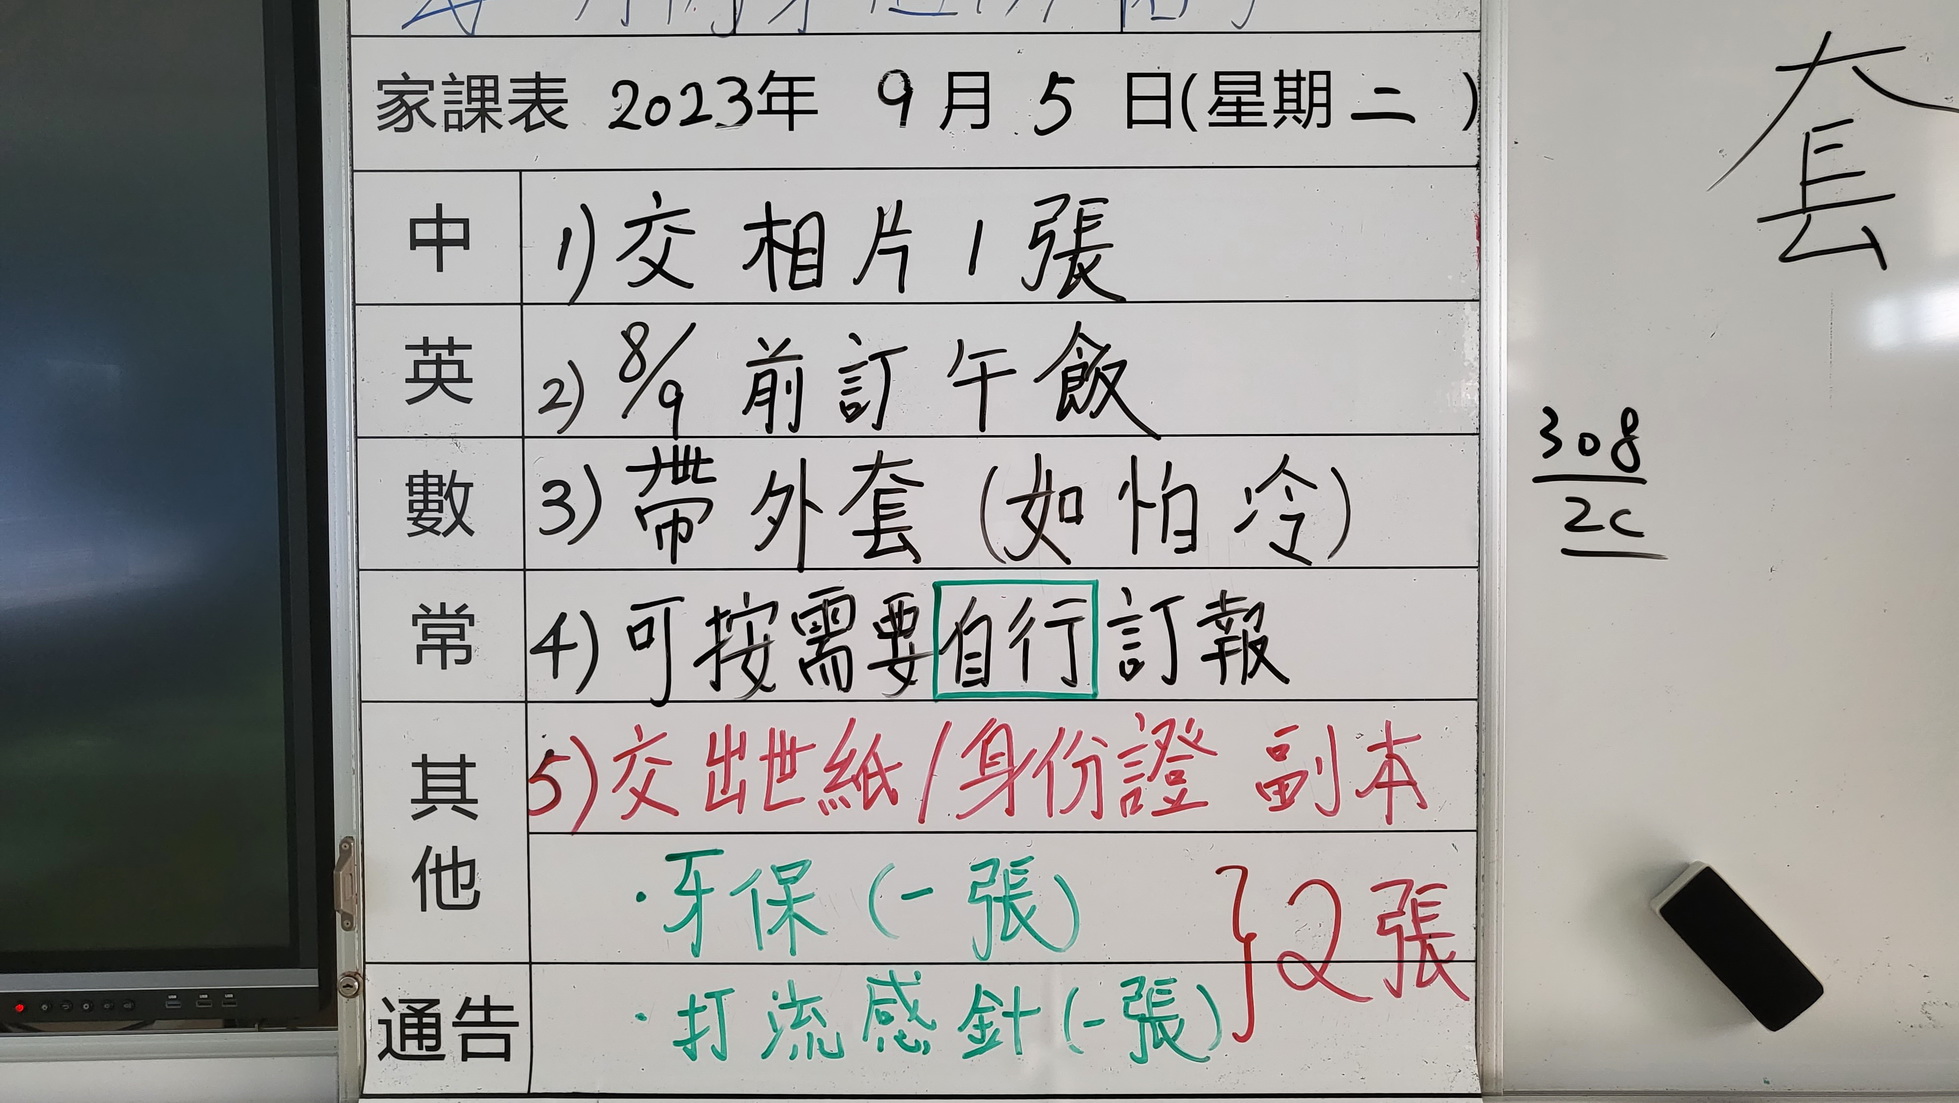 家課表 2023年 9月 5 日(星期二 )
中 1) 交 相片 1 張
英 2) 8/9 前訂午飯
數 3) 帶外套 (如怕冷)
常 4) 可按需要自行訂報
其他 5) 交出世紙/身份證 副本
·牙保 (一張)
通告 ·打流感針(一張)
} 2張
套
308
2C